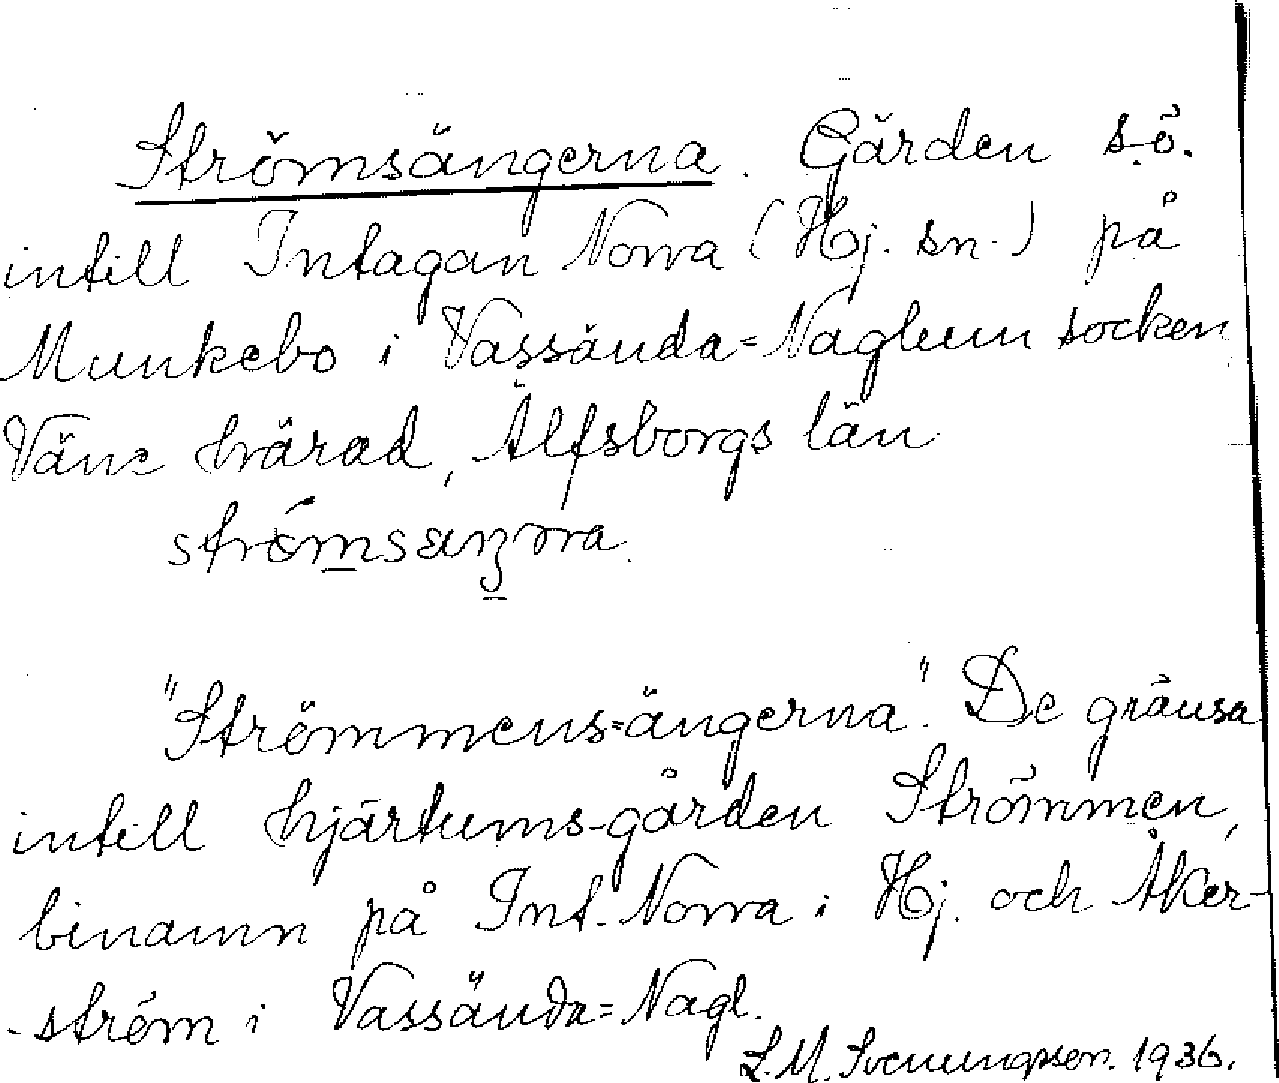 Strömsängerna. Gärden sö.
intill Intagan Norra (Hj. sn.) på
Munkebo i Vassända=Naglum socken
Väne härad, Älfsborgs län
"Strömmens=ängerna". De gränsa
intill hjärtums-gården Strömmen,
binamn på Int. Norra i Hj. och Åker-
-ström i Vassända=Nagl.
L. M. Svenungsson. 1936.